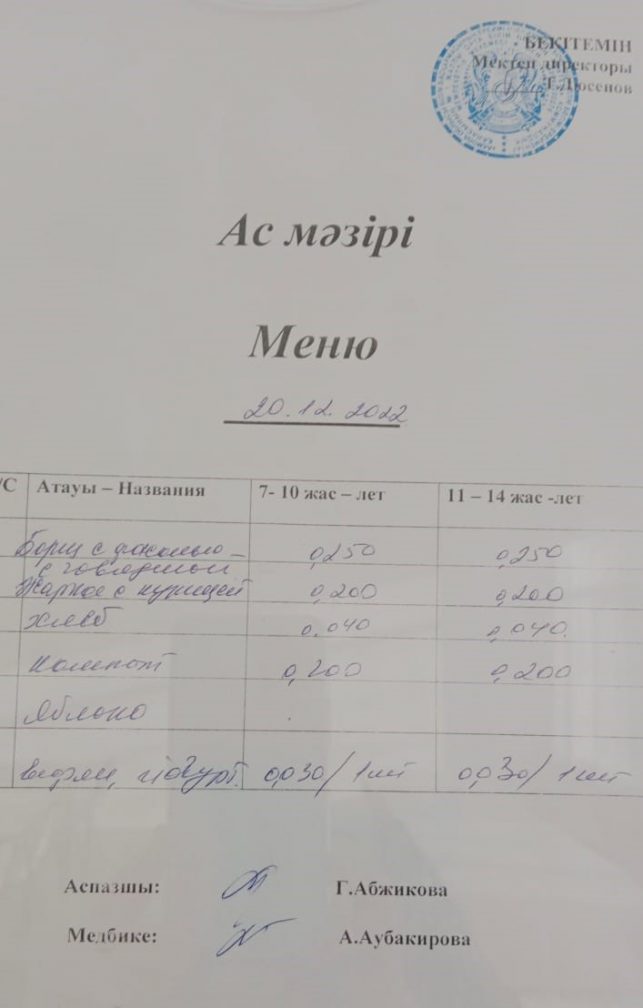 БЕКІТЕМІН
Мектеп директоры
Т.Дюсенов
Ас мәзірі
Меню
20.12.2022
/С Атауы – Названия 7- 10 жас – лет 11 – 14 жас -лет
Борщ с фасолью – 0,250 0,250
с говядиной
Жаркое с курицей 0,200 0,200
хлеб 0.040 0,040.
Компот 0,200 0,200
Яблоко
йогурт. 0,030/ 1шт 0,030/ 1шт
Аспазшы: Г.Абжикова
Медбике: А.Аубакирова